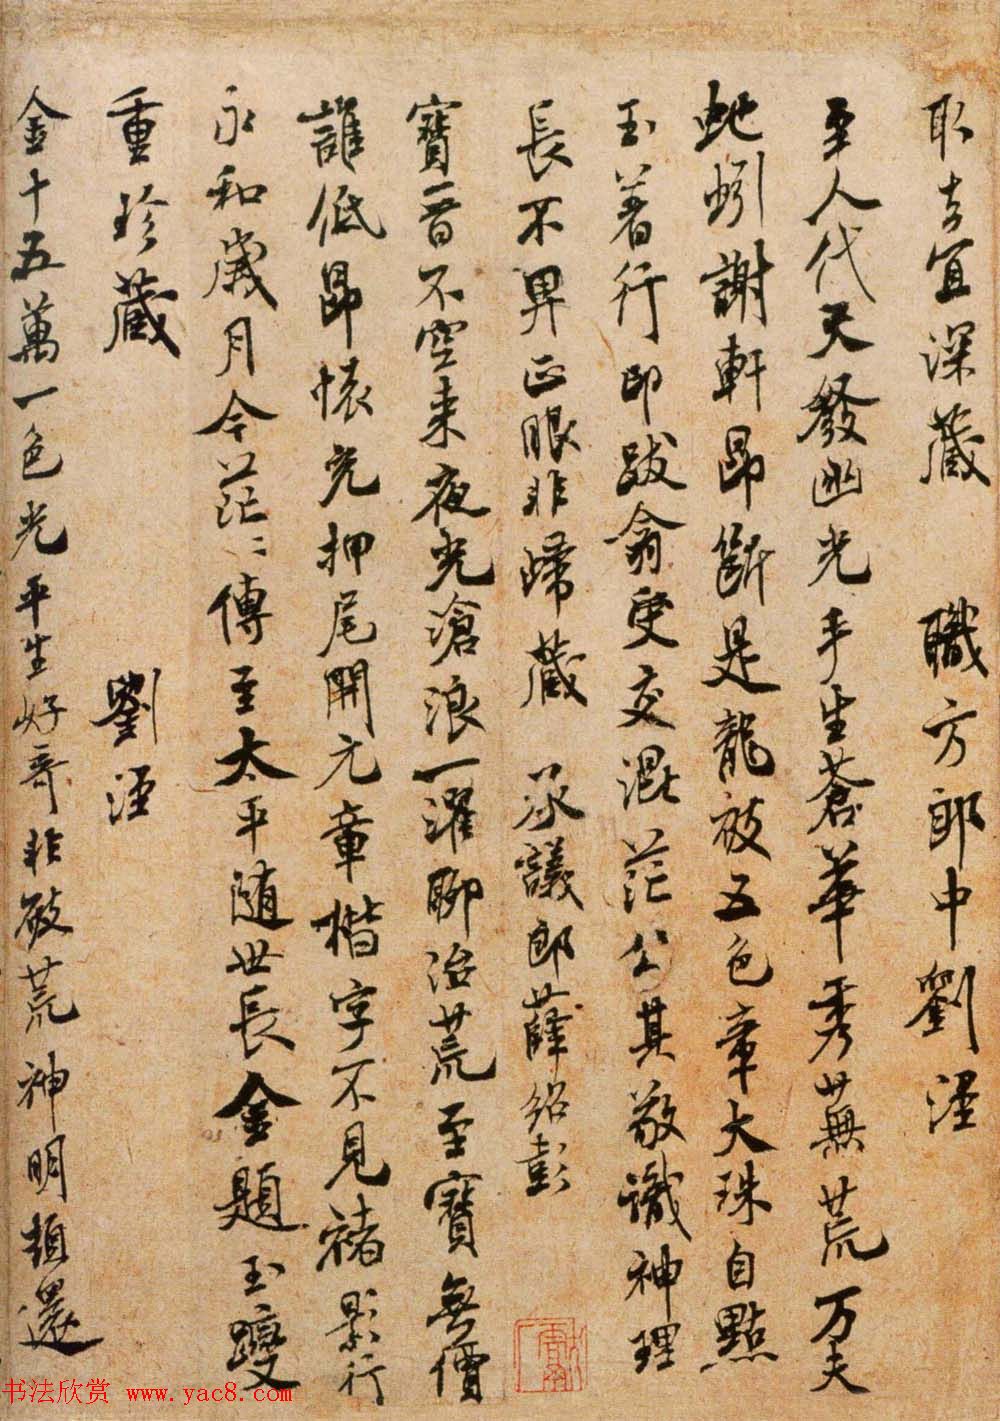 取去宜深藏 職方郎中劉涇
至人代天發幽光手生蒼華秀蕪荒万夫
虵蚓謝軒昂斷是龍被五色章大珠自點
玉著行印跋翕受交混茫公其敬識神理
長不畀正眼非歸藏 承議郎薛紹彭
寶晉不空來夜光滄浪一濯聊治荒至寶無價
誰低昂懷充押尾開元章楷字不見褚影行
永和歲月今茫〻傳至太平随世長金題玉躞
重珍藏 劉涇
金十五萬一色光平生好奇非破荒神明頓還
书法欣赏 www.yac8.com